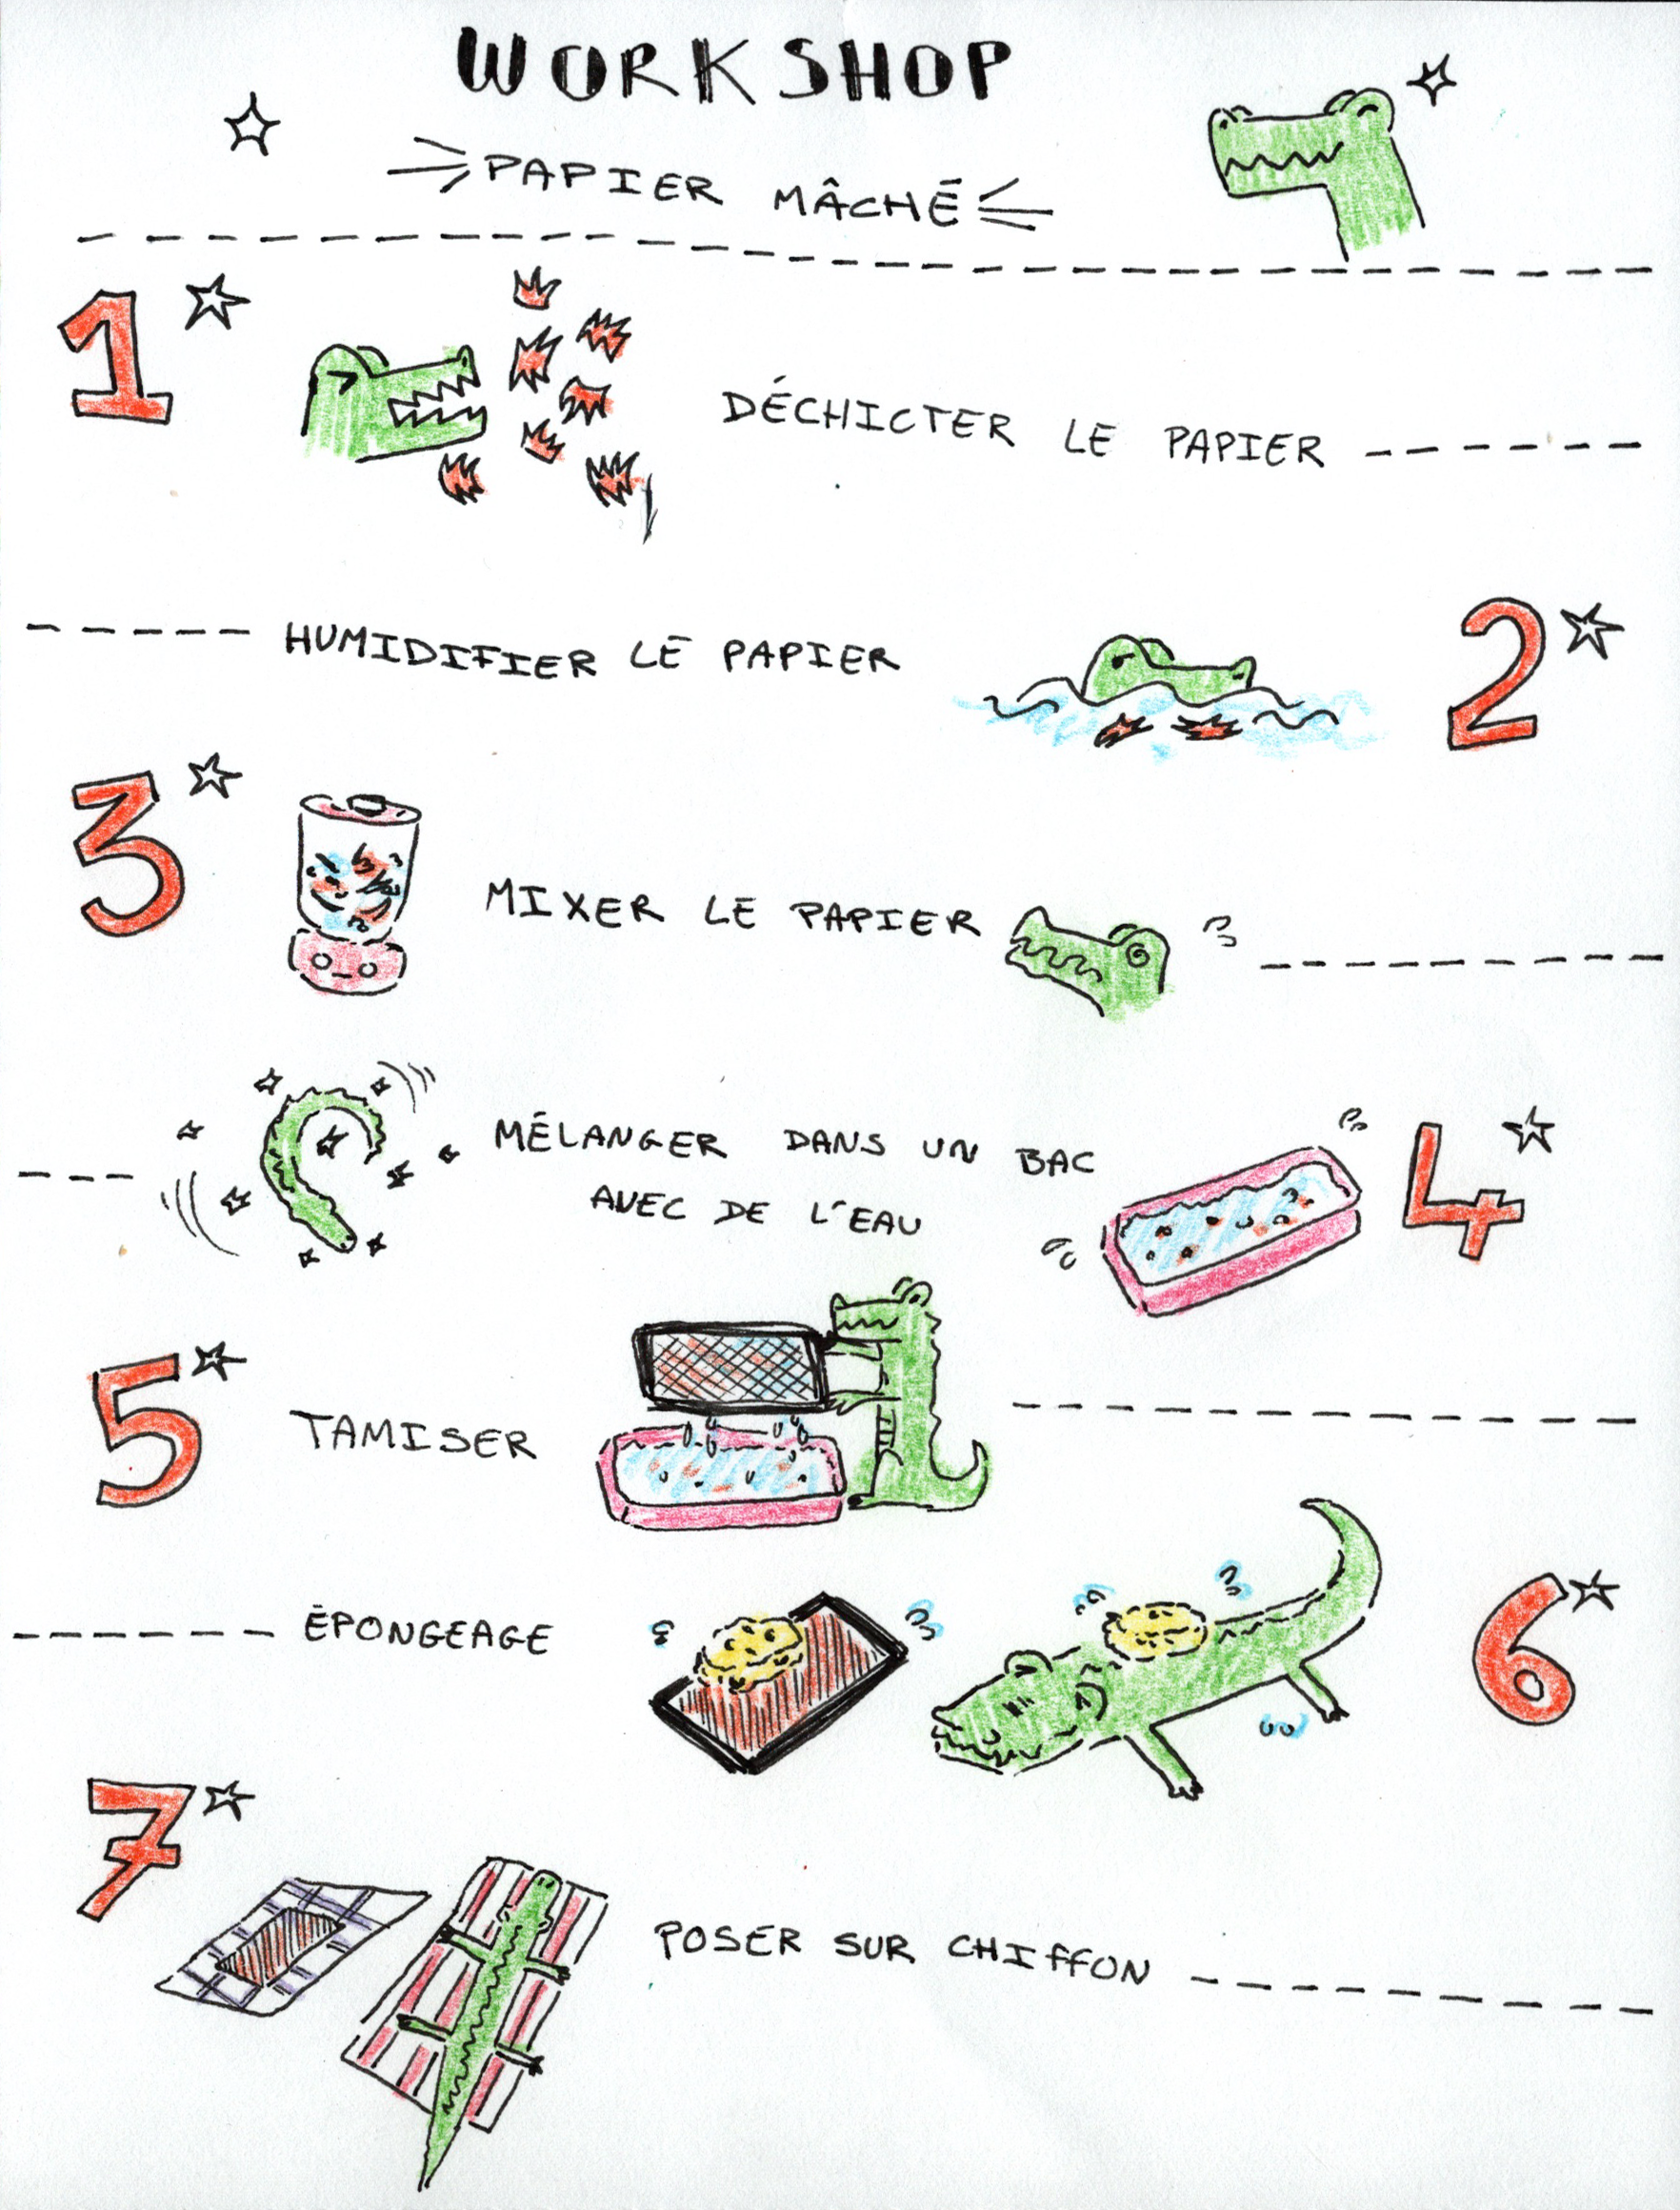 WORKSHOP
PAPIER MÂCHÉ
1
DÉCHICTER LE PAPIER
HUMIDIFIER LE PAPIER
2
3
MIXER LE PAPIER
MÉLANGER DANS UN BAC
AVEC DE L'EAU
4
5
TAMISER
ÉPONGEAGE
6
7
POSER SUR CHIFFON